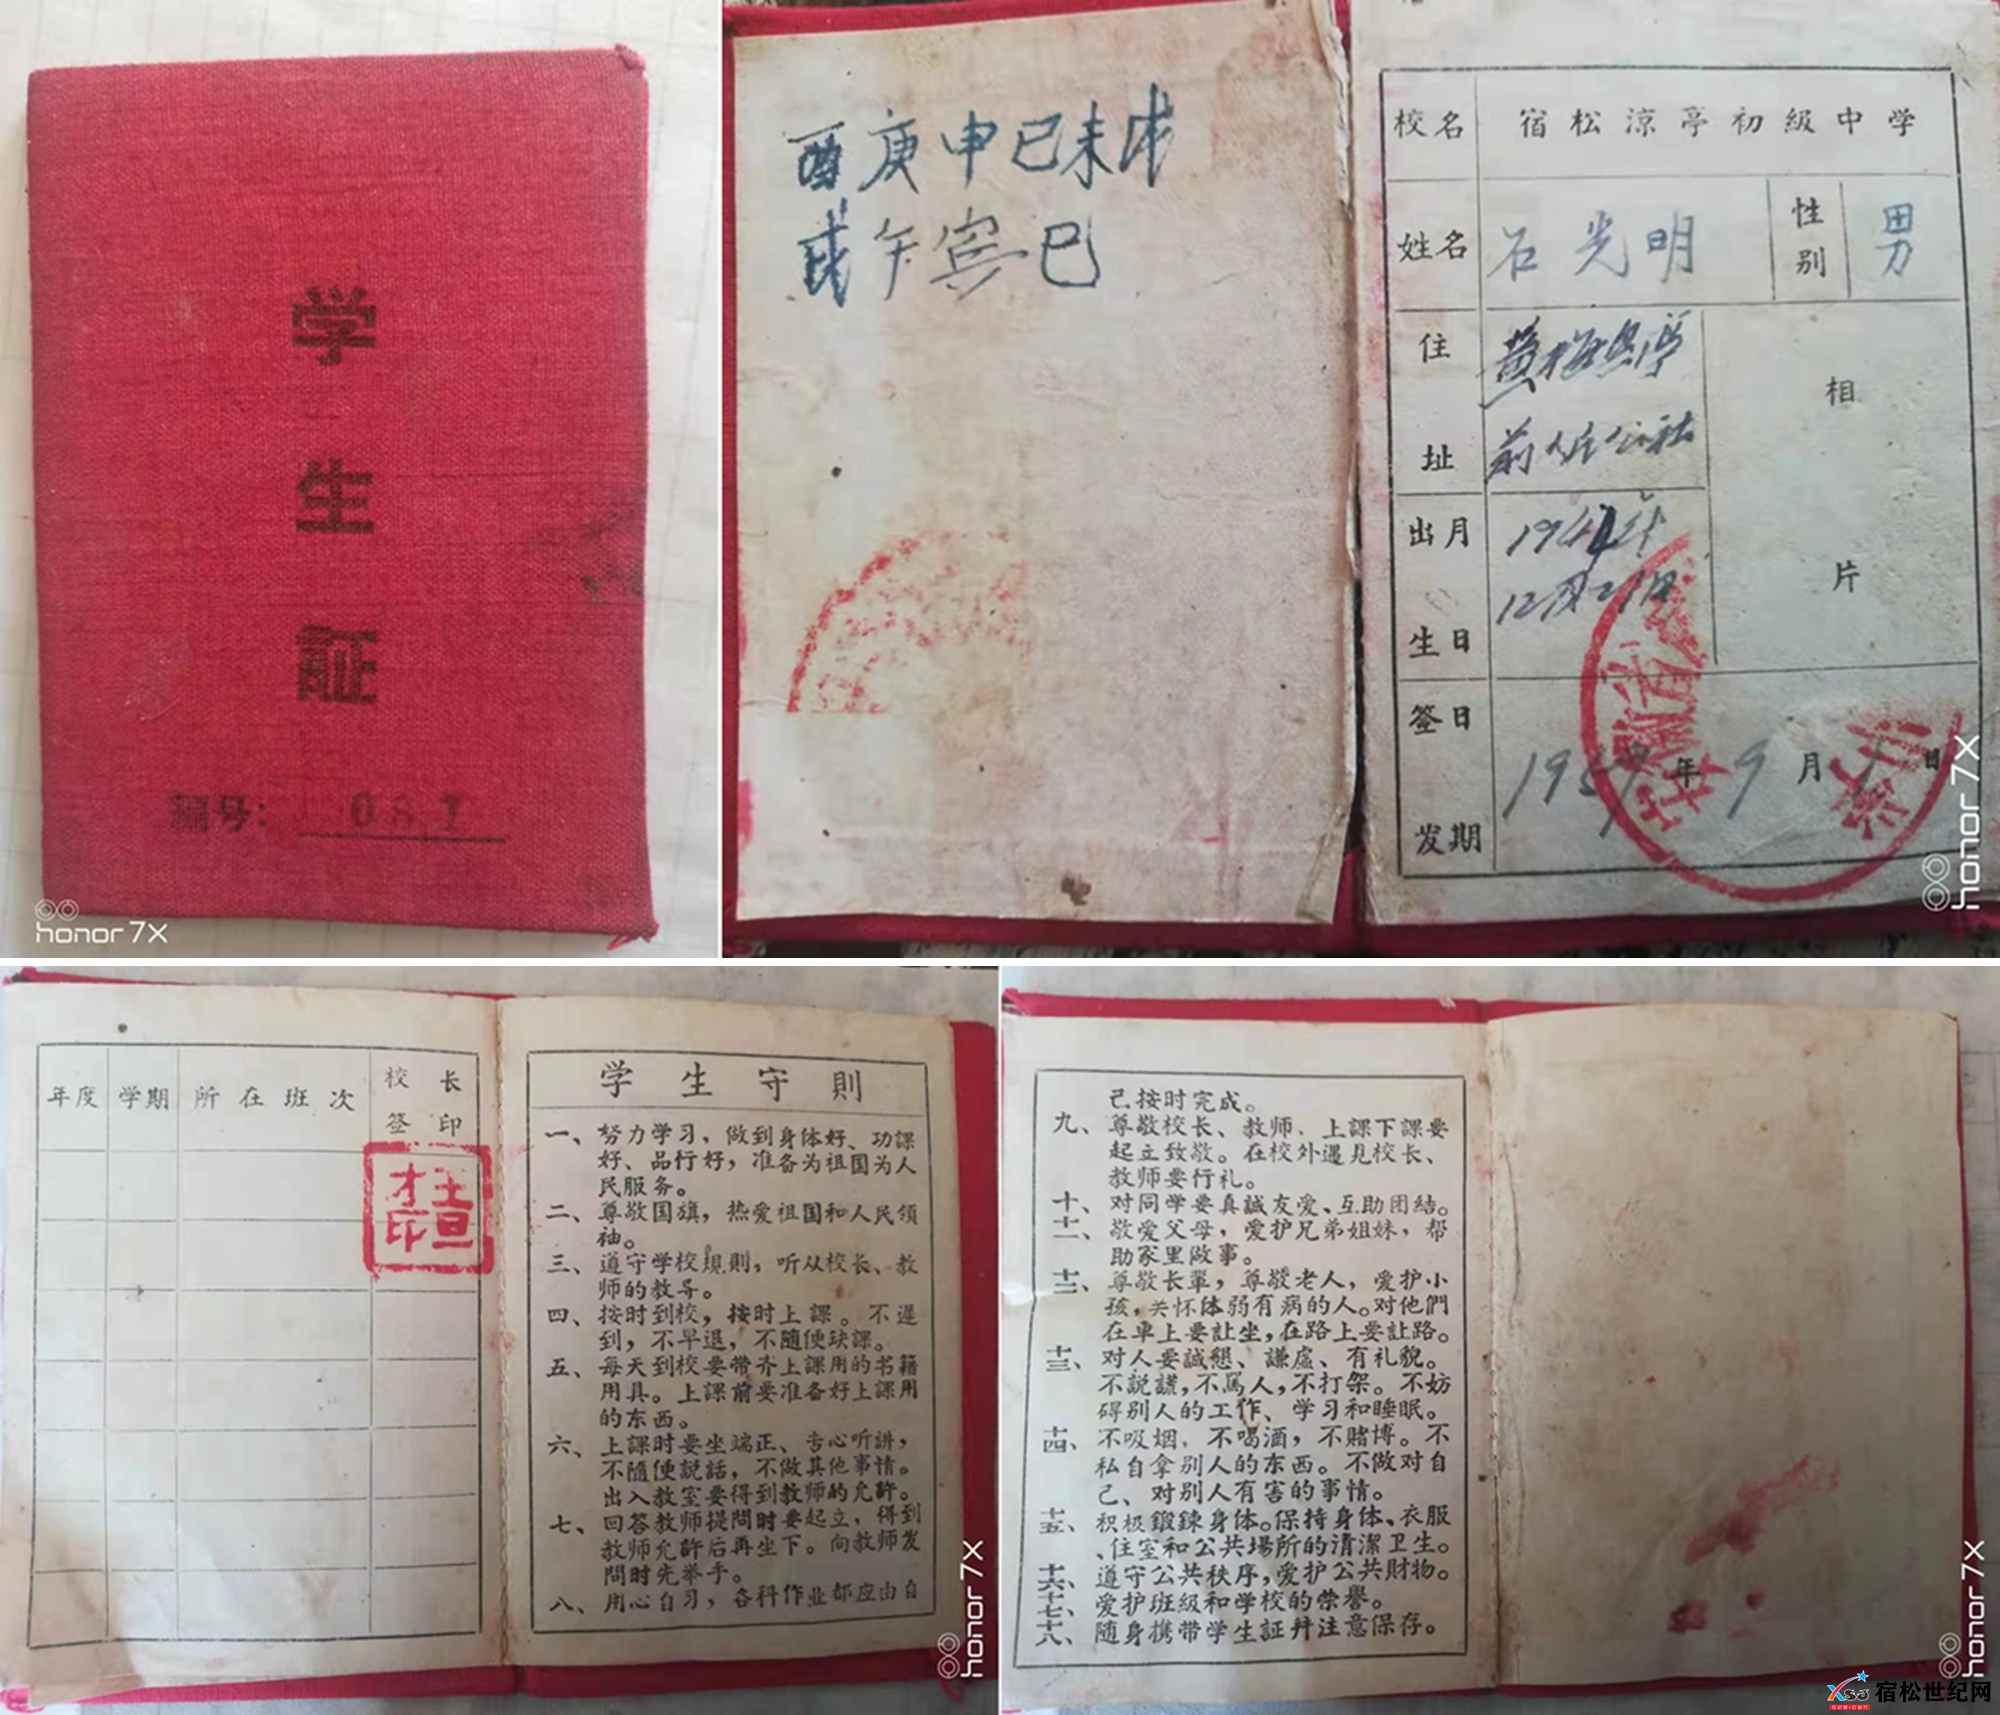 学
生
証
編号： 081
honor 7X
酉庚申已未戌
戌午寅巳
校名 宿松涼亭初級中学
姓名 石光明 性别 男
住址 黄梅
公社
相片
出生 月日
12月21日
签发 日期 19 年 9 月 1 日
honor 7X
年度 学期 所在班次 校长签印
学生守則
一、努力学习，做到身体好、功課
好、品行好，准备为祖国为人
民服务。
二、尊敬国旗，热爱祖国和人民領
袖。
三、遵守学校規則，听从校长、教
师的教导。
四、按时到校，按时上課。不遲
到，不早退，不隨便缺課。
五、每天到校要带齐上課用的书籍
用具。上課前要准备好上課用
的东西。
六、上課时要坐端正、专心听讲，
不隨便説話，不做其他事情。
出入教室要得到教师的允許。
七、回答教师提問时要起立，得到
教师允許后再坐下。向教师发
問时先举手。
八、用心自习，各科作业都应由自
honor 7X
己按时完成。
九、尊敬校长、教师．上課下課要
起立致敬。在校外遇見校长、
教师要行礼。
十、对同学要真誠友爱、互助团結。
十一、敬爱父母，爱护兄弟姐妹，帮
助家里做事。
十二、尊敬长輩，尊敬老人，爱护小
孩，关怀体弱有病的人。对他們
在車上要註坐，在路上要註路。
十三、对人要誠懇、謙虛、有礼貌。
不説謊，不罵人，不打架。不妨
碍别人的工作、学习和睡眠。
十四、不吸烟．不喝酒，不賭博。不
私自拿别人的东西。不做对自
己、对别人有害的事情。
十五、积极鍛鍊身体。保持身体、衣服
、住室和公共場所的清潔卫生。
十六、遵守公共秩序，爱护公共財物。
十七、爱护班級和学校的荣誉。
十八、随身携带学生証幷注意保存。
honor 7X
宿松世纪网